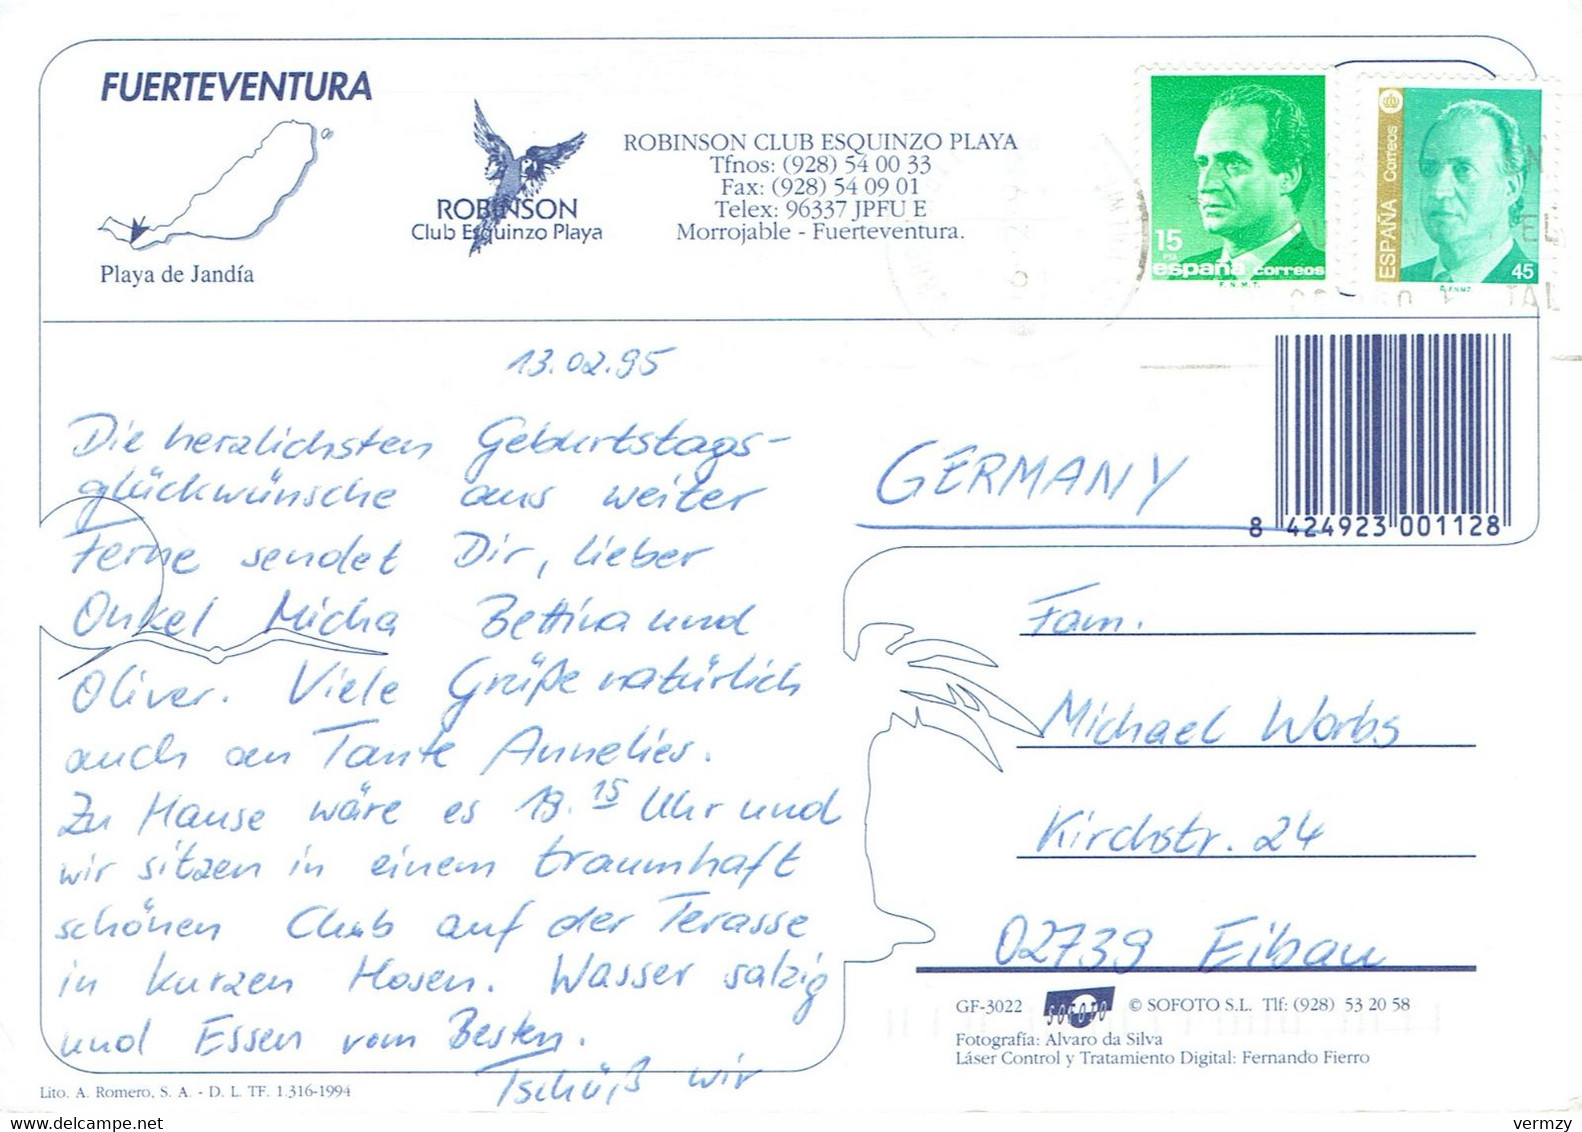 FUERTEVENTURA
Playa de Jandía
ROBINSON
Club Esquinzo Playa
ROBINSON CLUB ESQUINZO PLAYA
Tfnos: (928) 54 00 33
Fax: (928) 54 09 01
Telex: 96337 JPFU E
Morrojable - Fuerteventura.
15
PTA
españa correos
F.N.M.T.
ESPAÑA Correos
45
13.02.95
Die herzlichsten Geburtstags-
glückwünsche aus weiter
Ferne sendet Dir, lieber
Onkel Micha Bettina und
Oliver. Viele Grüße natürlich
auch an Tante Annelies.
Zu Hause wäre es 18.15 Uhr und
wir sitzen in einem traumhaft
schönen Club auf der Terasse
in kurzen Hosen. Wasser salzig
und Essen vom Besten.
Tschüß wir
GERMANY
8 424923 001128
Fam.
Michael Worbs
Kirchstr. 24
02739 Eibau
GF-3022 SOFOTO © SOFOTO S.L. Tlf: (928) 53 20 58
Fotografía: Alvaro da Silva
Láser Control y Tratamiento Digital: Fernando Fierro
Lito. A. Romero, S. A. - D. L. TF. 1.316-1994
www.delcampe.net
vermzy